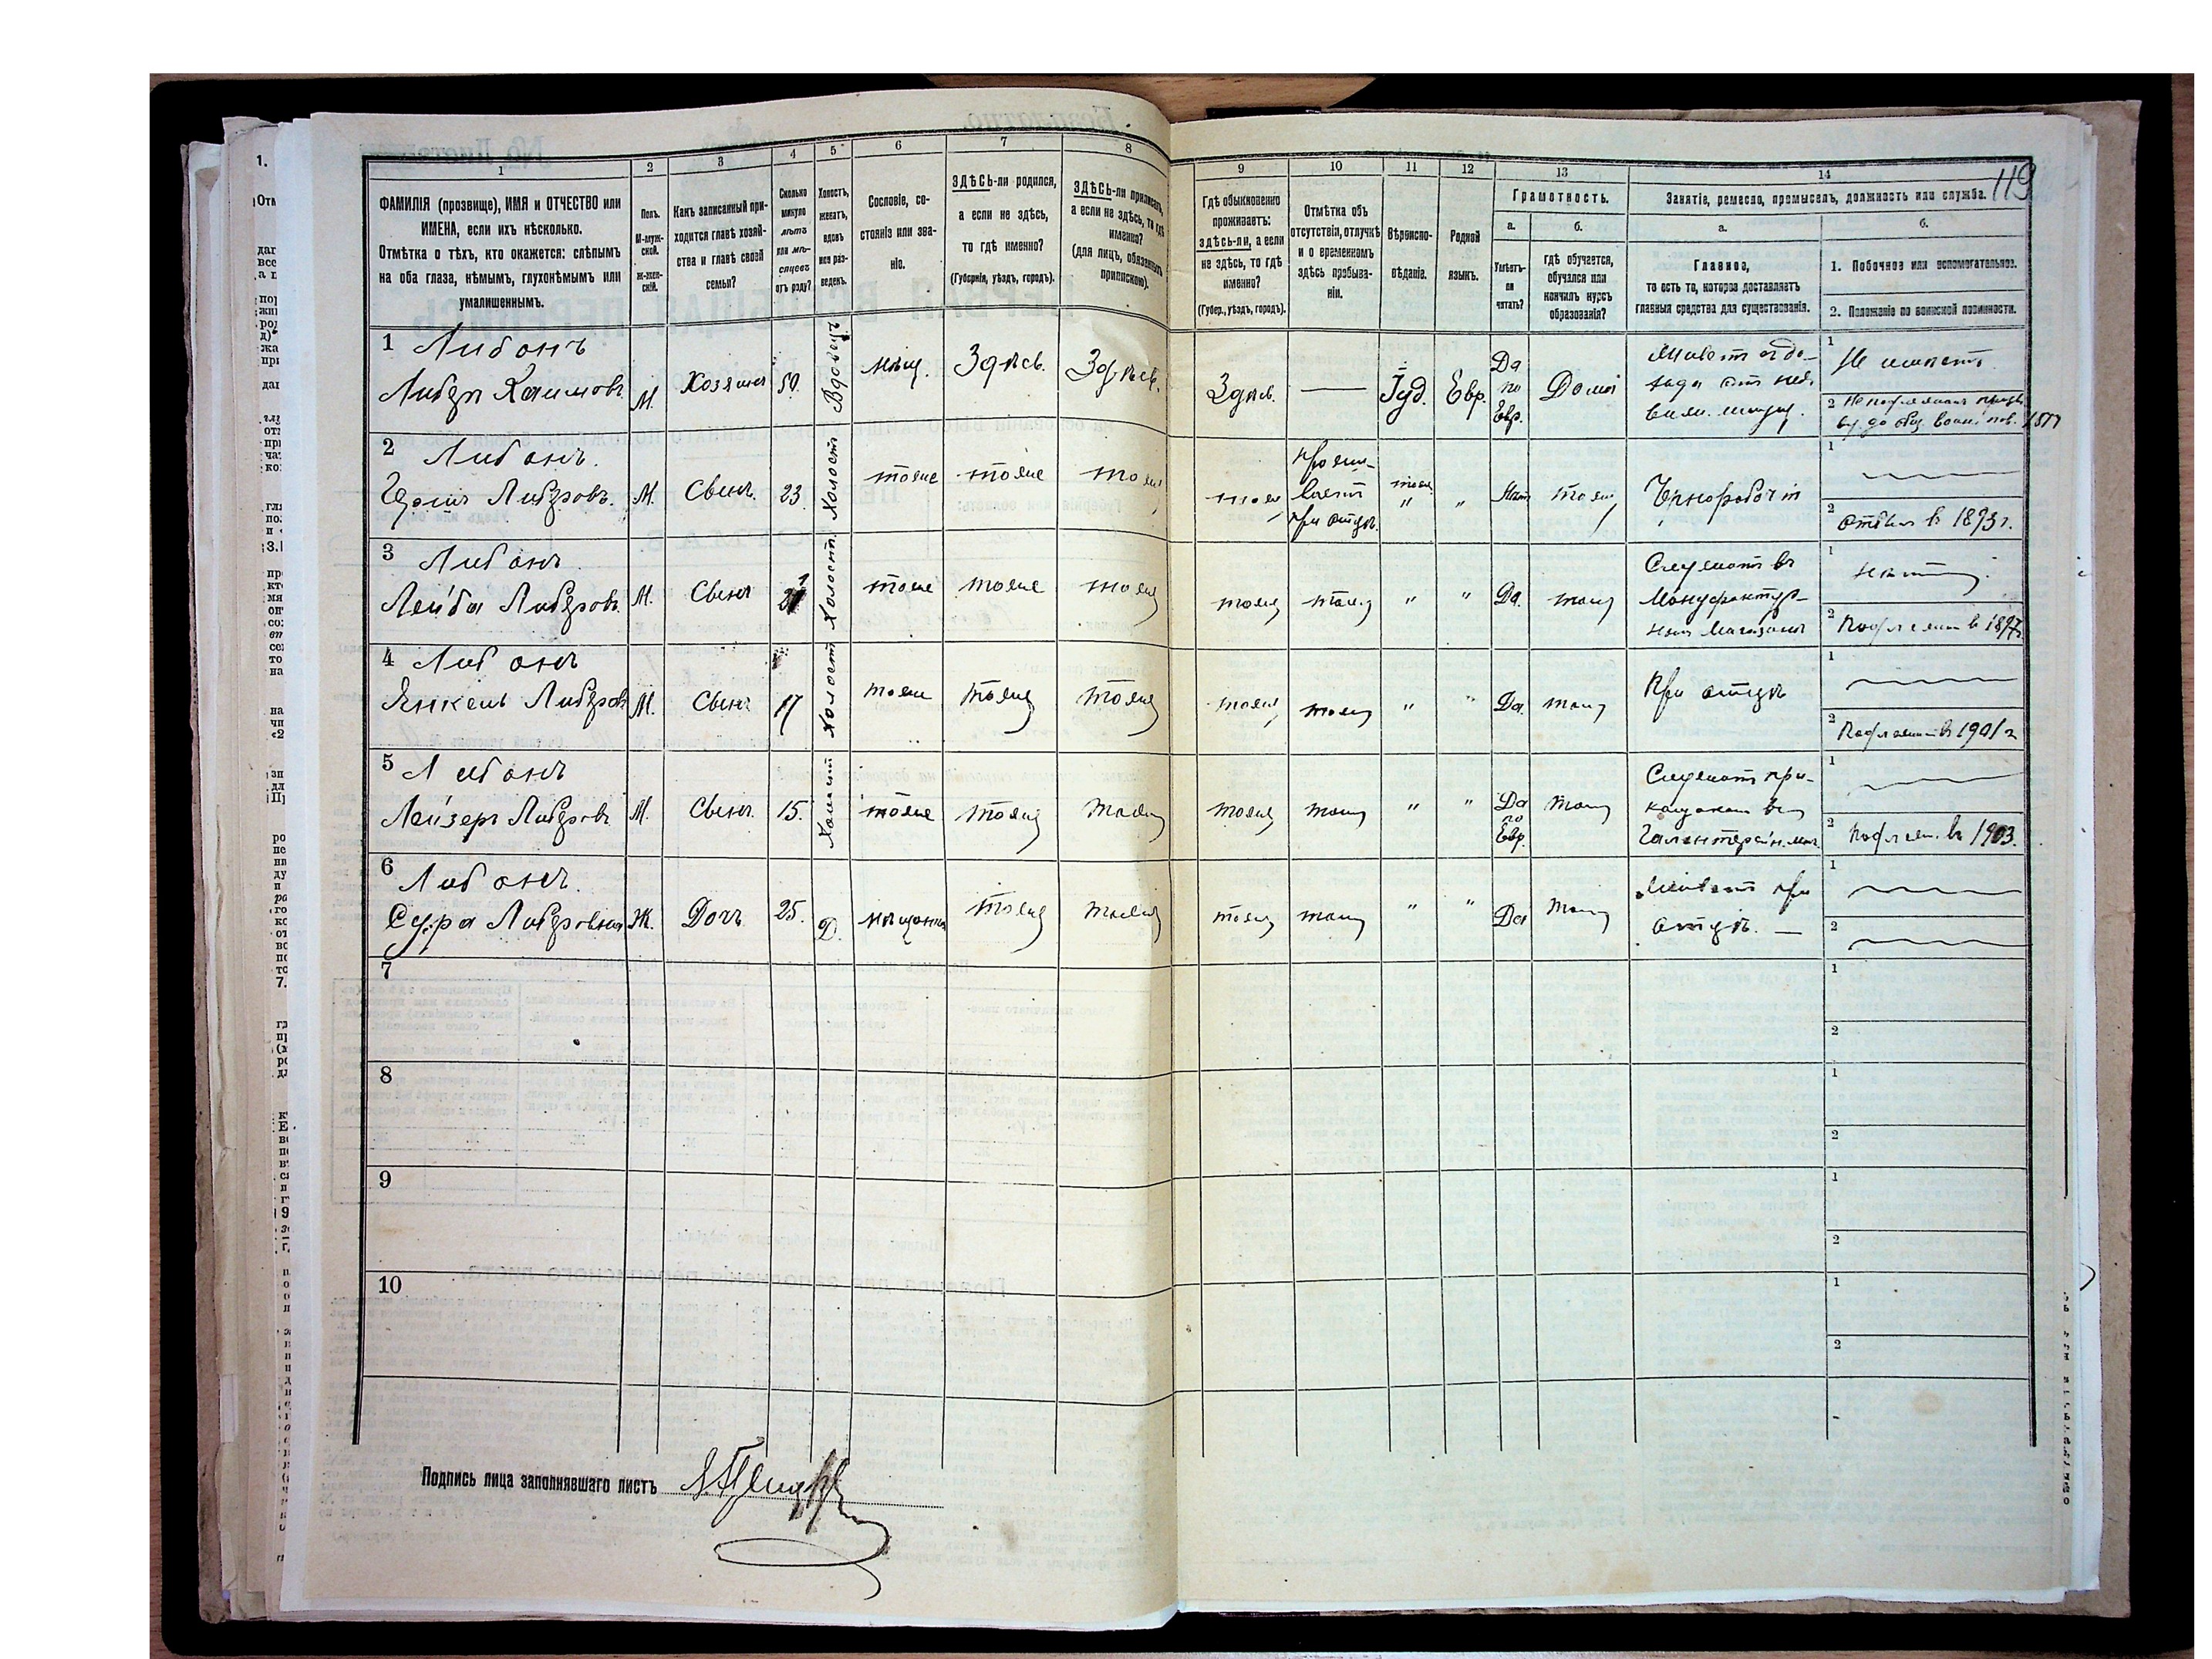 119
1
2
3
4
5
6
7
8
9
10
11
12
13
14
ФАМИЛІЯ (прозвище), ИМЯ и ОТЧЕСТВО или
ИМЕНА, если ихъ нѣсколько.
Отмѣтка о тѣхъ, кто окажется: слѣпымъ
на оба глаза, нѣмымъ, глухонѣмымъ или
умалишеннымъ.
Полъ.
М-муж-
ской.
ж-жен-
скій.
Какъ записанный при-
ходится главѣ хозяй-
ства и главѣ своей
семьи?
Сколько
минуло
лѣтъ
или мѣ-
сяцевъ
отъ роду?
Холостъ,
женатъ,
вдовъ
или раз-
веденъ.
Сословіе, со-
стояніе или зва-
ніе.
ЗДѢСЬ-ли родился,
а если не здѣсь,
то гдѣ именно?
(Губернія, уѣздъ, городъ).
ЗДѢСЬ-ли приписанъ,
а если не здѣсь, то гдѣ
именно?
(для лицъ, обязанныхъ
припискою).
Гдѣ обыкновенно
проживаетъ:
здѣсь-ли, а если
не здѣсь, то гдѣ
именно?
(Губер., уѣздъ, городъ).
Отмѣтка объ
отсутствіи, отлучкѣ
и о временномъ
здѣсь пребыва-
ніи.
Вѣроиспо-
вѣданіе.
Родной
языкъ.
Грамотность.
а.
б.
Умѣетъ-
ли
читать?
гдѣ обучается,
обучался или
кончилъ курсъ
образованія?
Занятіе, ремесло, промыселъ, должность или служба.
а.
б.
Главное,
то есть то, которое доставляетъ
главныя средства для существованія.
1. Побочное или вспомогательное.
2. Положеніе по воинской повинности.
1 Либонъ
Либеръ Хаимовъ
М.
Хозяинъ
50.
Вдовецъ
мѣщ.
Здѣсь.
Здѣсь.
Здѣсь.
Іуд.
Евр.
Да
по
Евр.
Дома
1 Не имѣетъ
2
2 Либонъ.
М.
Сынъ.
23
Холостъ
тоже
тоже
тоже
тоже
прожи-
ваетъ
при отцѣ.
тоже
"
"
Нѣтъ
тоже
Чернорабочій
1
2 отбылъ в 1893 г.
3 Либонъ.
Лейба Либеровъ
М.
Сынъ
21
Холостъ.
тоже
тоже
тоже
тоже
тоже
"
"
Да.
тоже
Служитъ въ
Мануфактур-
номъ Магазинѣ
1 нѣтъ
2 Подлежитъ в 1897 г.
4 Либонъ
Янкель Либеровъ
М.
Сынъ
17
Холостъ
тоже
тоже
тоже
тоже
тоже
"
"
Да.
тоже
При отцѣ
1
2 Подлежитъ в 1901 г
5 Либонъ
Лейзеръ Либеровъ
М.
Сынъ.
15.
Холостъ
тоже
тоже
тоже
тоже
тоже
"
"
Да
по
Евр.
тоже
Служитъ при-
кащикомъ въ
Галантерейн. маг.
1
2 Подлеж. въ 1903.
6 Либонъ.
Сура Либеровна
Ж.
Дочь
25.
Д.
мѣщанка
тоже
тоже
тоже
тоже
"
"
Да
тоже
Живетъ при
отцѣ. —
1
2
7
1
2
8
1
2
9
1
2
10
1
2
Подпись лица заполнявшаго листъ